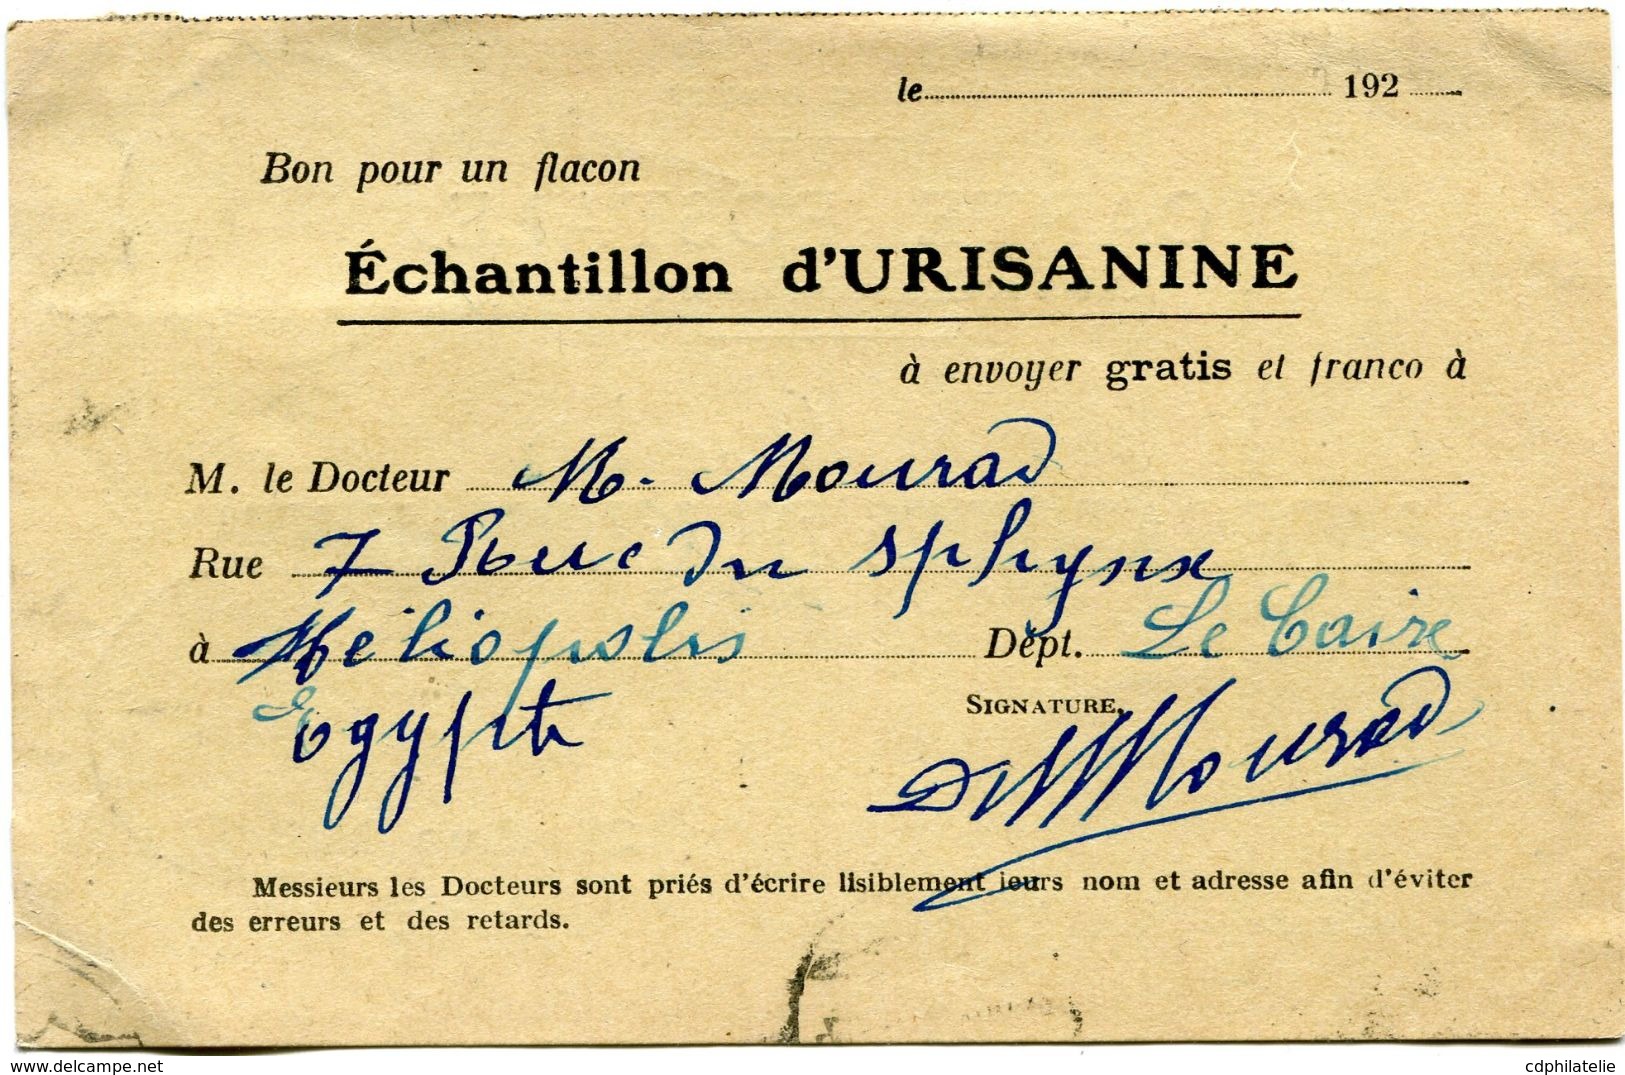 le 192
Bon pour un flacon
Échantillon d'URISANINE
à envoyer gratis et franco à
M. le Docteur M. Mourad
Rue 7 Rue du Sphynx
à Héliopolis Dépt. Le Caire
Egypte
SIGNATURE,
Dr M Mourad
Messieurs les Docteurs sont priés d'écrire lisiblement leurs nom et adresse afin d'éviter
des erreurs et des retards.
www.delcampe.net
cdphilatelie